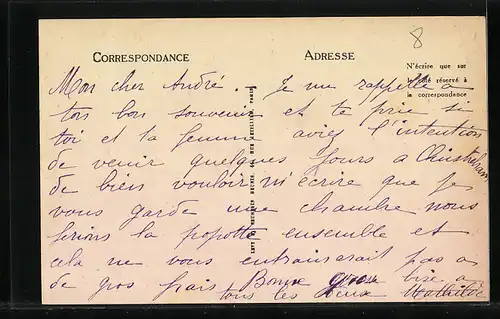 8
CORRESPONDANCE
ADRESSE
N'écrire que sur
le côté réservé à
la correspondance
Mon cher André. Je me rappelle a
ton bon souvenir et te prie si
toi et ta femme aviez l'intention
de venir quelques jours a
de bien vouloir m'écrire que je
vous garde une chambre nous
ferions la popotte ensemble et
cela ne vous entrainerait pas a
de gros frais Bonne grosse bise a
tous les deux Mathilde